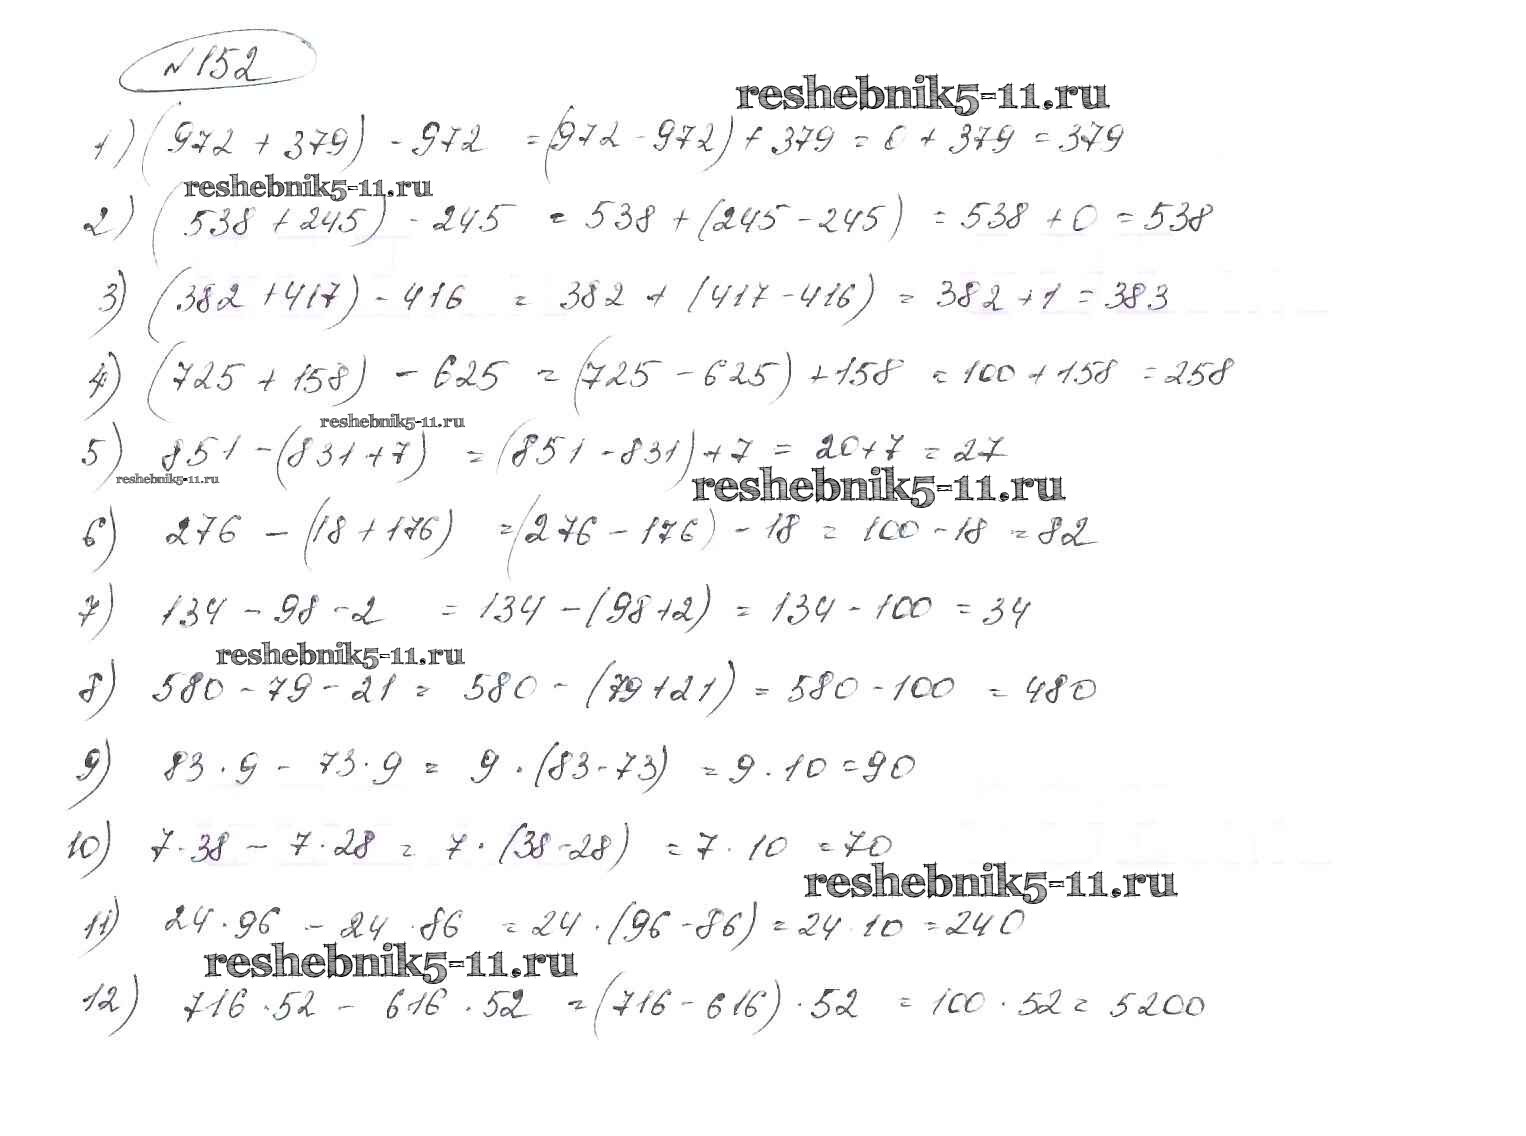 №152
reshebnik5-11.ru
1) (972 + 379) - 972 = (972 - 972) + 379 = 0 + 379 = 379
reshebnik5-11.ru
2) (538 + 245) - 245 = 538 + (245 - 245) = 538 + 0 = 538
3) (382 + 417) - 416 = 382 + (417 - 416) = 382 + 1 = 383
4) (725 + 158) - 625 = (725 - 625) + 158 = 100 + 158 = 258
reshebnik5-11.ru
5) 851 - (831 + 7) = (851 - 831) + 7 = 20 + 7 = 27
reshebnik5-11.ru
reshebnik5-11.ru
6) 276 - (18 + 176) = (276 - 176) - 18 = 100 - 18 = 82
7) 134 - 98 - 2 = 134 - (98 + 2) = 134 - 100 = 34
reshebnik5-11.ru
8) 580 - 79 - 21 = 580 - (79 + 21) = 580 - 100 = 480
9) 83 · 9 - 73 · 9 = 9 · (83 - 73) = 9 · 10 = 90
10) 7 · 38 - 7 · 28 = 7 · (38 - 28) = 7 · 10 = 70
reshebnik5-11.ru
11) 24 · 96 - 24 · 86 = 24 · (96 - 86) = 24 · 10 = 240
reshebnik5-11.ru
12) 716 · 52 - 616 · 52 = (716 - 616) · 52 = 100 · 52 = 5200